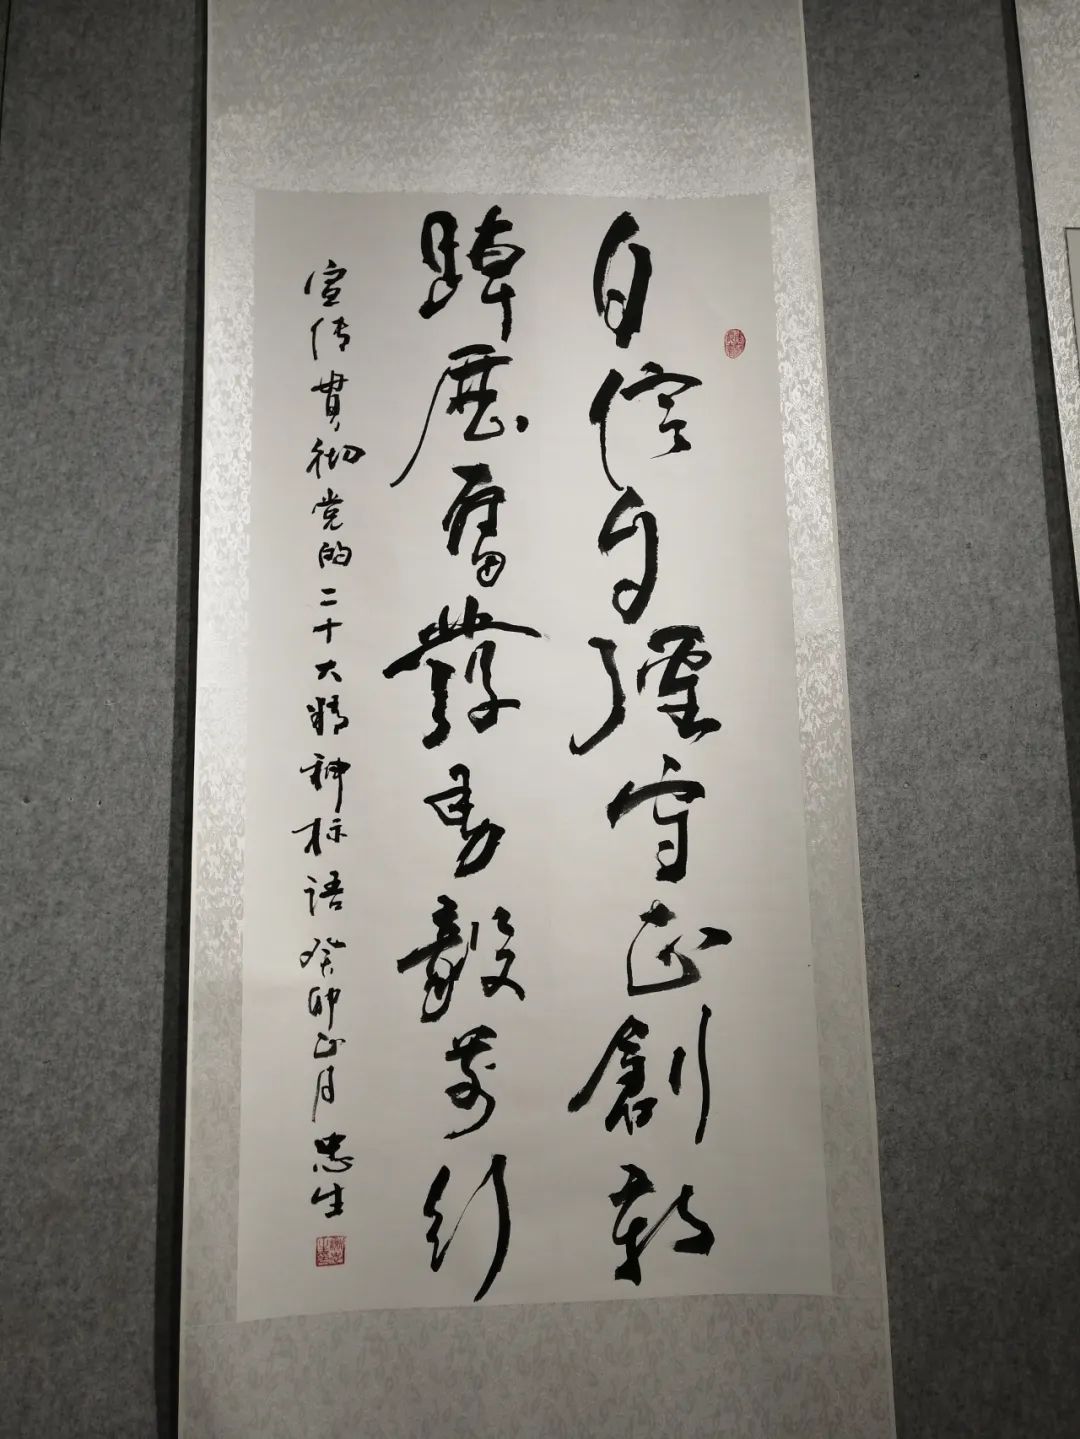 自信自强守正創新
踔厲奮發勇毅前行
宣传貫彻党的二十大精神标语癸卯正月忠生